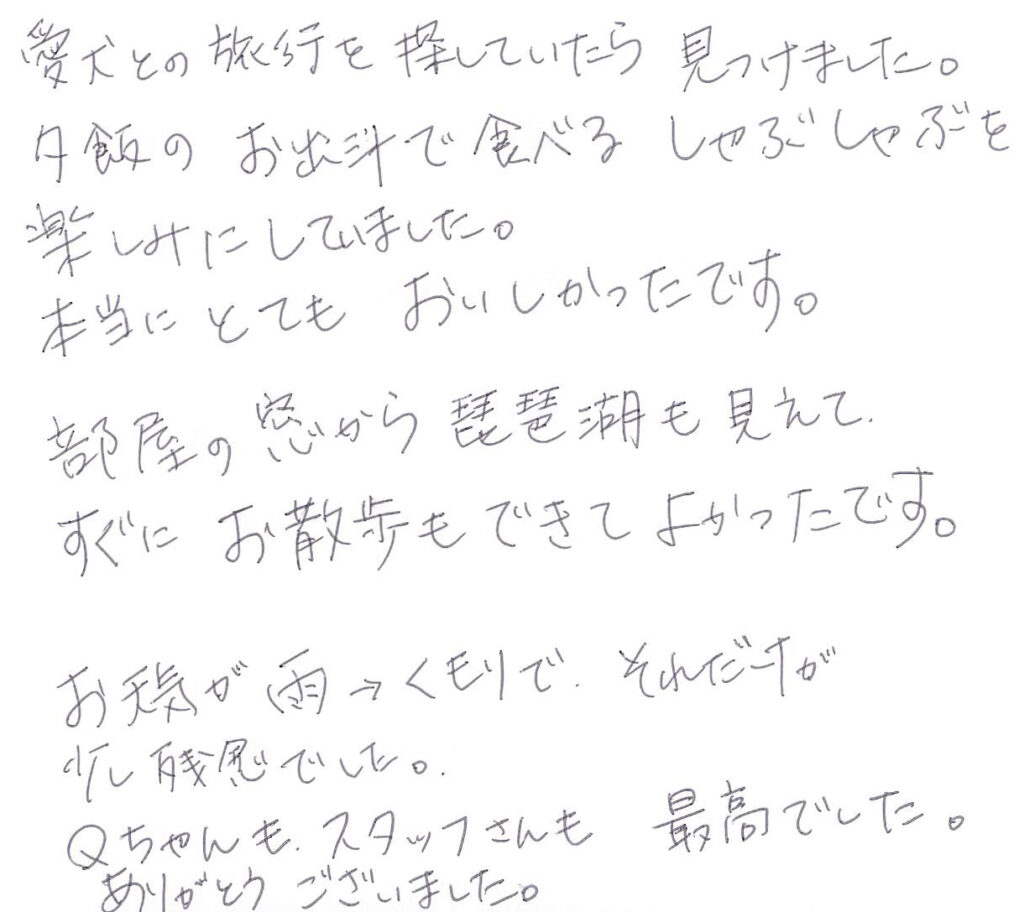 愛犬との旅行を探していたら見つけました。
夕飯のお出汁で食べるしゃぶしゃぶを
楽しみにしていました。
本当にとてもおいしかったです。
部屋の窓から琵琶湖も見えて、
すぐにお散歩もできてよかったです。
お天気が雨→くもりで、それだけが
少し残念でした。
Qちゃんも、スタッフさんも最高でした。
ありがとうございました。